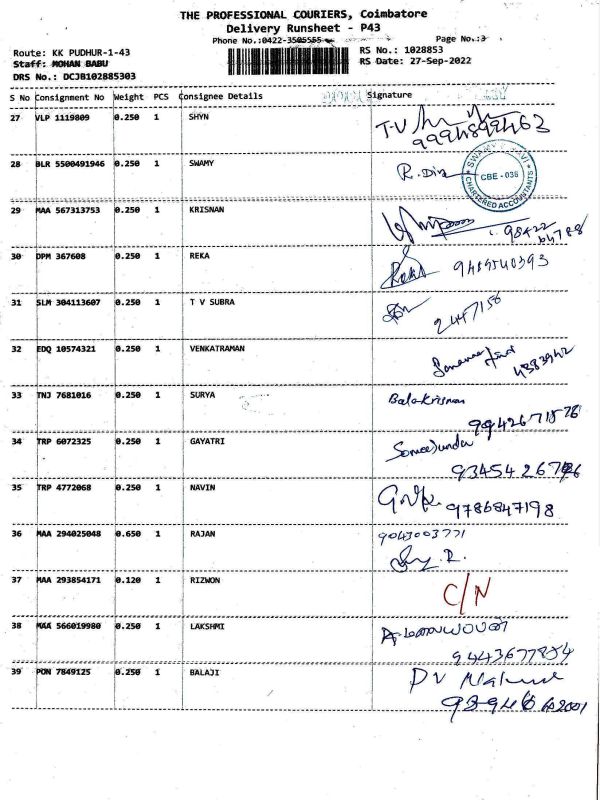 THE PROFESSIONAL COURIERS, Coimbatore
Delivery Runsheet - P43
Phone No.:0422-3505555 Page No.:3
Route: KK PUDHUR-1-43 RS No.: 1028853
Staff: MOHAN BABU RS Date: 27-Sep-2022
DRS No.: DCJB102885303
S No Consignment No Weight PCS Consignee Details Signature
27 VLP 1119809 0.250 1 SHYN T-V
9994899463
28 BLR 5500491946 0.250 1 SWAMY R. Div
SWAMY VI CBE - 036 CHARTERED ACCOUNTANTS
29 MAA 567313753 0.250 1 KRISNAN
98422
30 DPM 367608 0.250 1 REKA Reka 9489540393
31 SLM 304113607 0.250 1 T V SUBRA 2447156
32 EDQ 10574321 0.250 1 VENKATRAMAN
4383942
33 TNJ 7681016 0.250 1 SURYA Balakrisnan
34 TRP 6072325 0.250 1 GAYATRI
35 TRP 4772068 0.250 1 NAVIN 9786847198
36 MAA 294025048 0.650 1 RAJAN 9043003771
R.
37 MAA 293854171 0.120 1 RIZWON C/N
38 MAA 566019980 0.250 1 LAKSHMI
39 PON 7849125 0.250 1 BALAJI PV